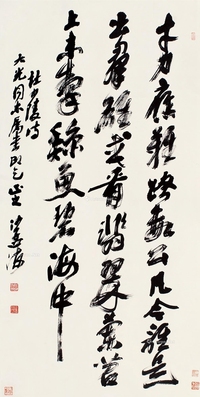 才力應難跨數公凡今誰是
出羣雄或看翡翠蘭苕
上未掣鯨魚碧海中
杜少陵詩
同志屬書
沙孟海